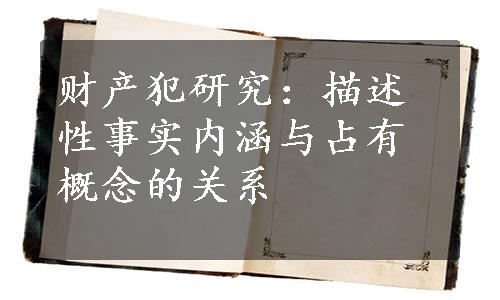 财产犯研究：描述
性事实内涵与占有
概念的关系